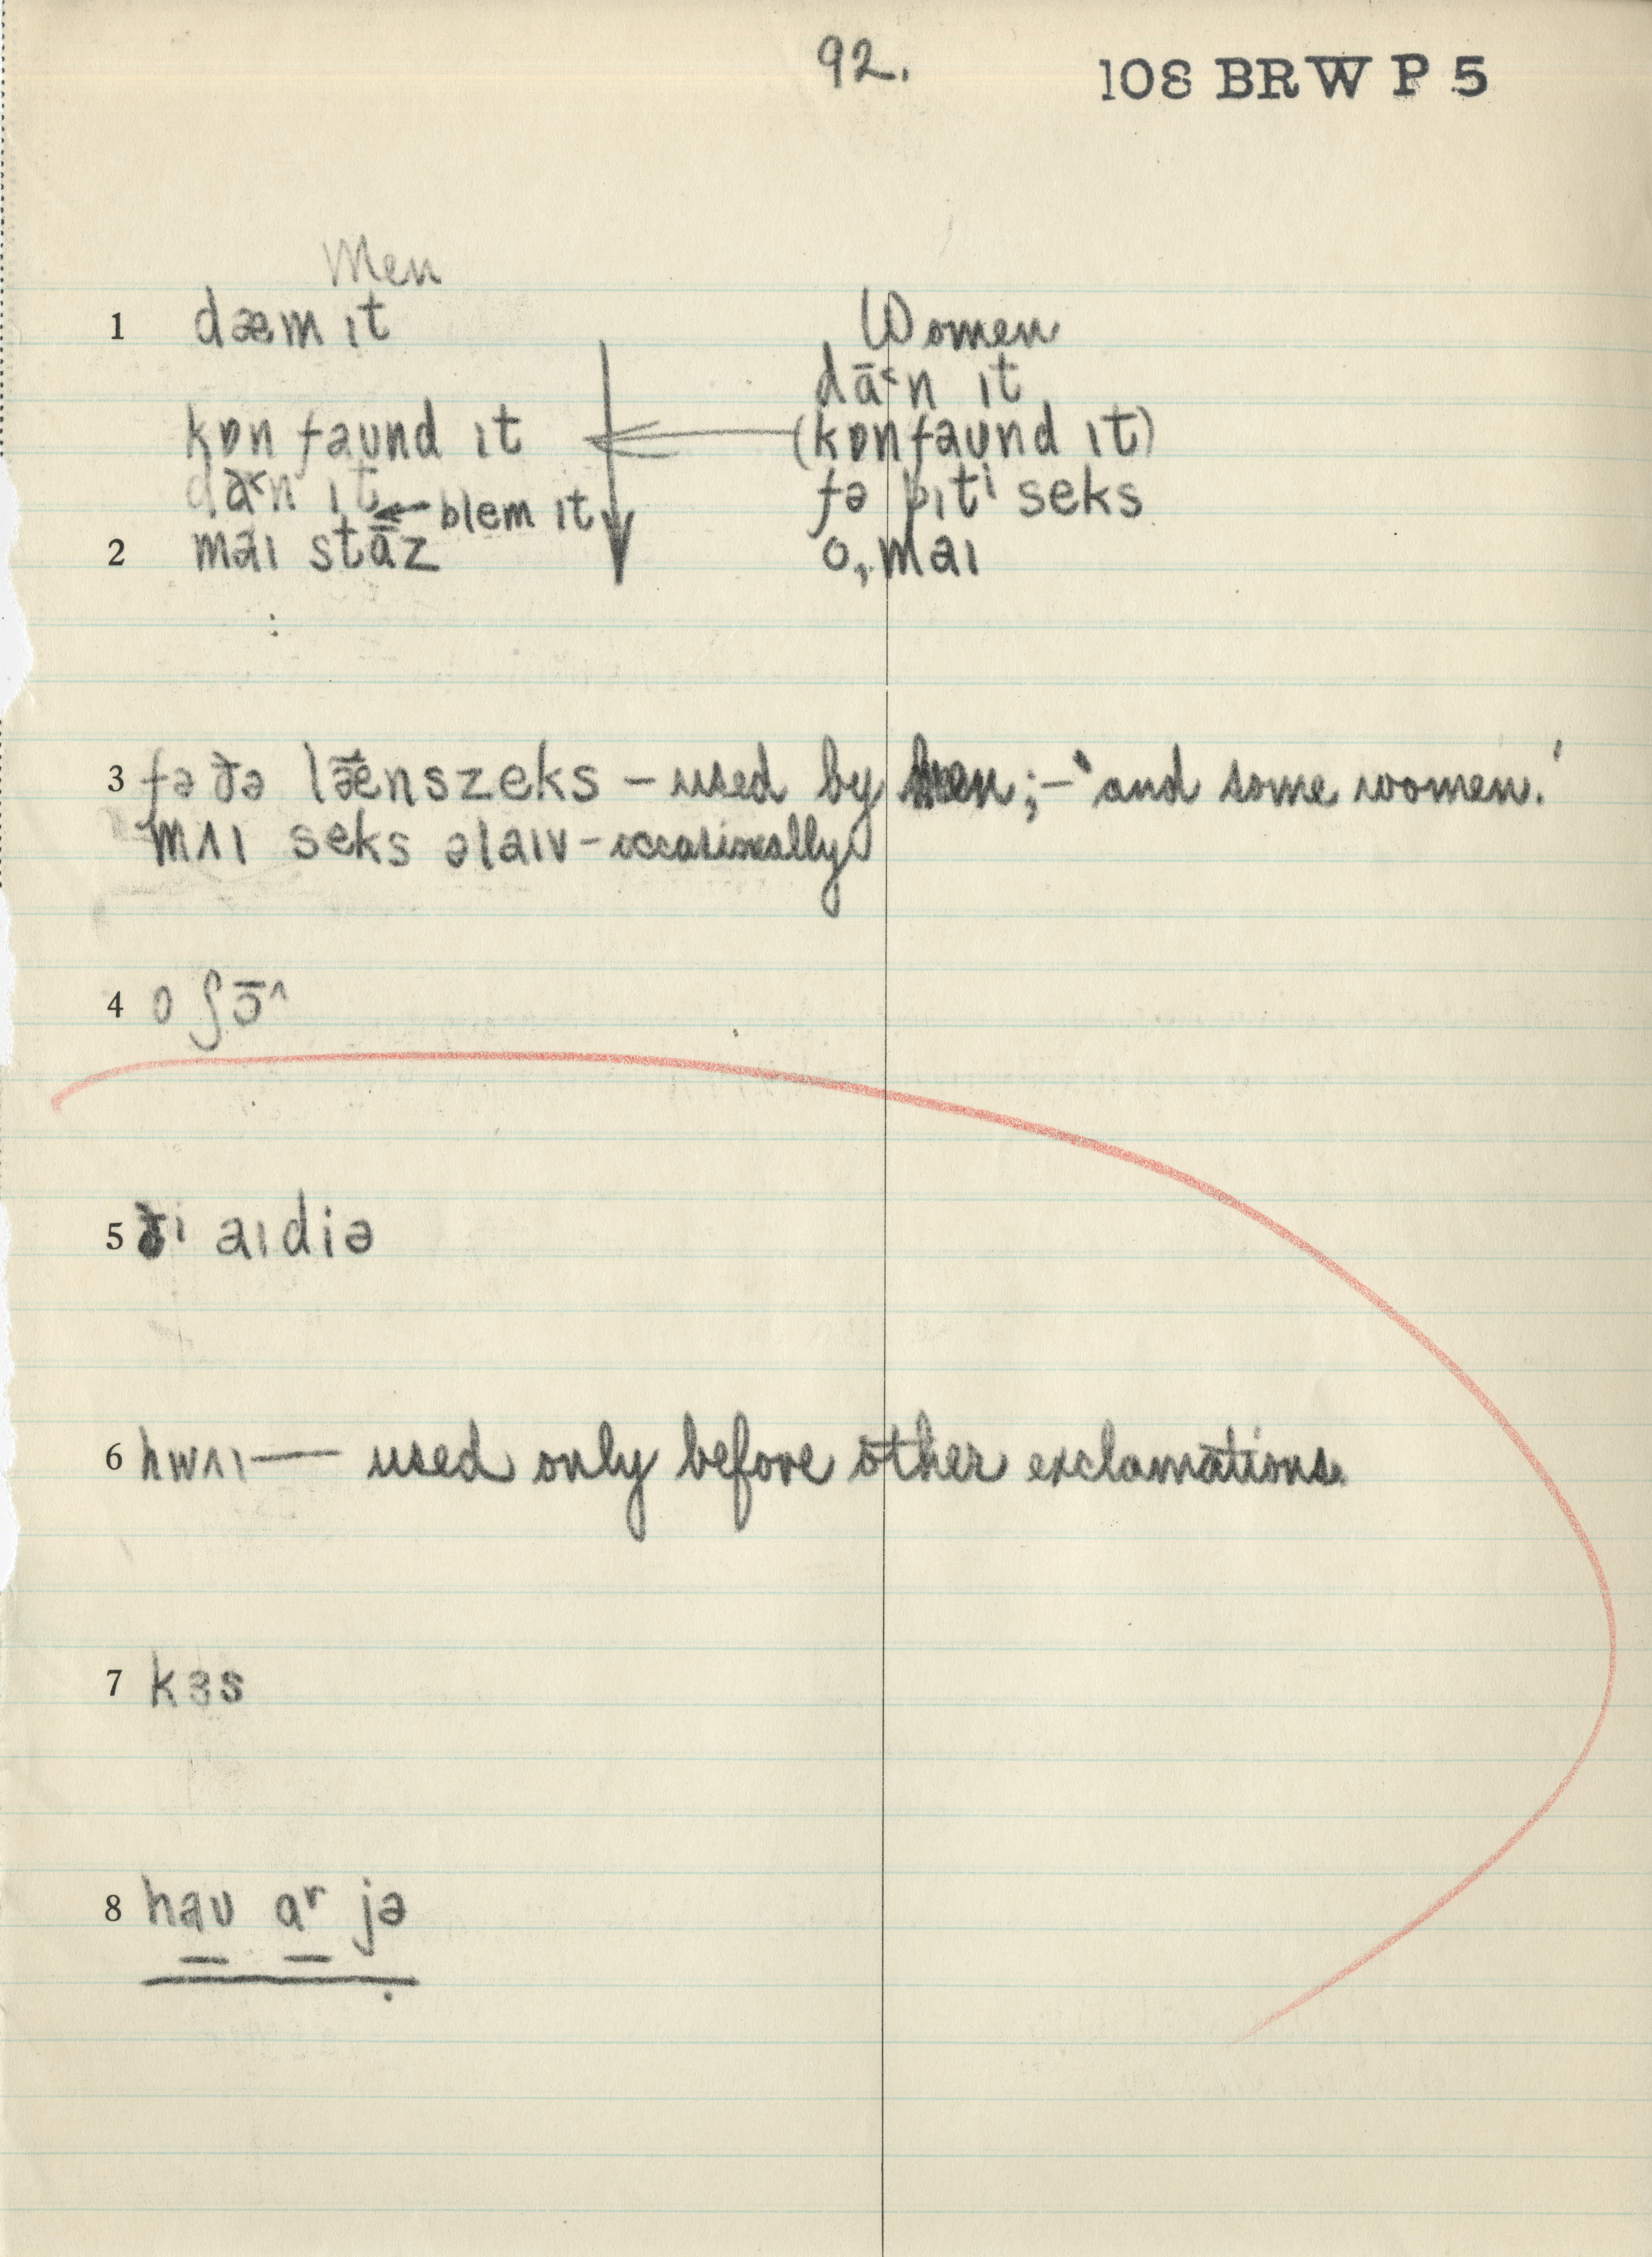 92.
108 BRW P 5
Men
1 dæm ɪt
Women
dā˂n ɪt
kɒn faʊnd ɪt
(kɒnfaʊnd ɪt)
dā˂n ɪt
fə pɪtⁱ seks
blem ɪt
2 maɪ stāz
o, maɪ
3 fə ðə lǣnszeks – used by men; – 'and some women.'
mʌɪ seks əlaɪv – occasionally
4 o ʃɔ̄^
5 ðⁱ aɪdiə
6 hwʌɪ — used only before other exclamations.
7 kɜs
8 haʊ aʳ jə